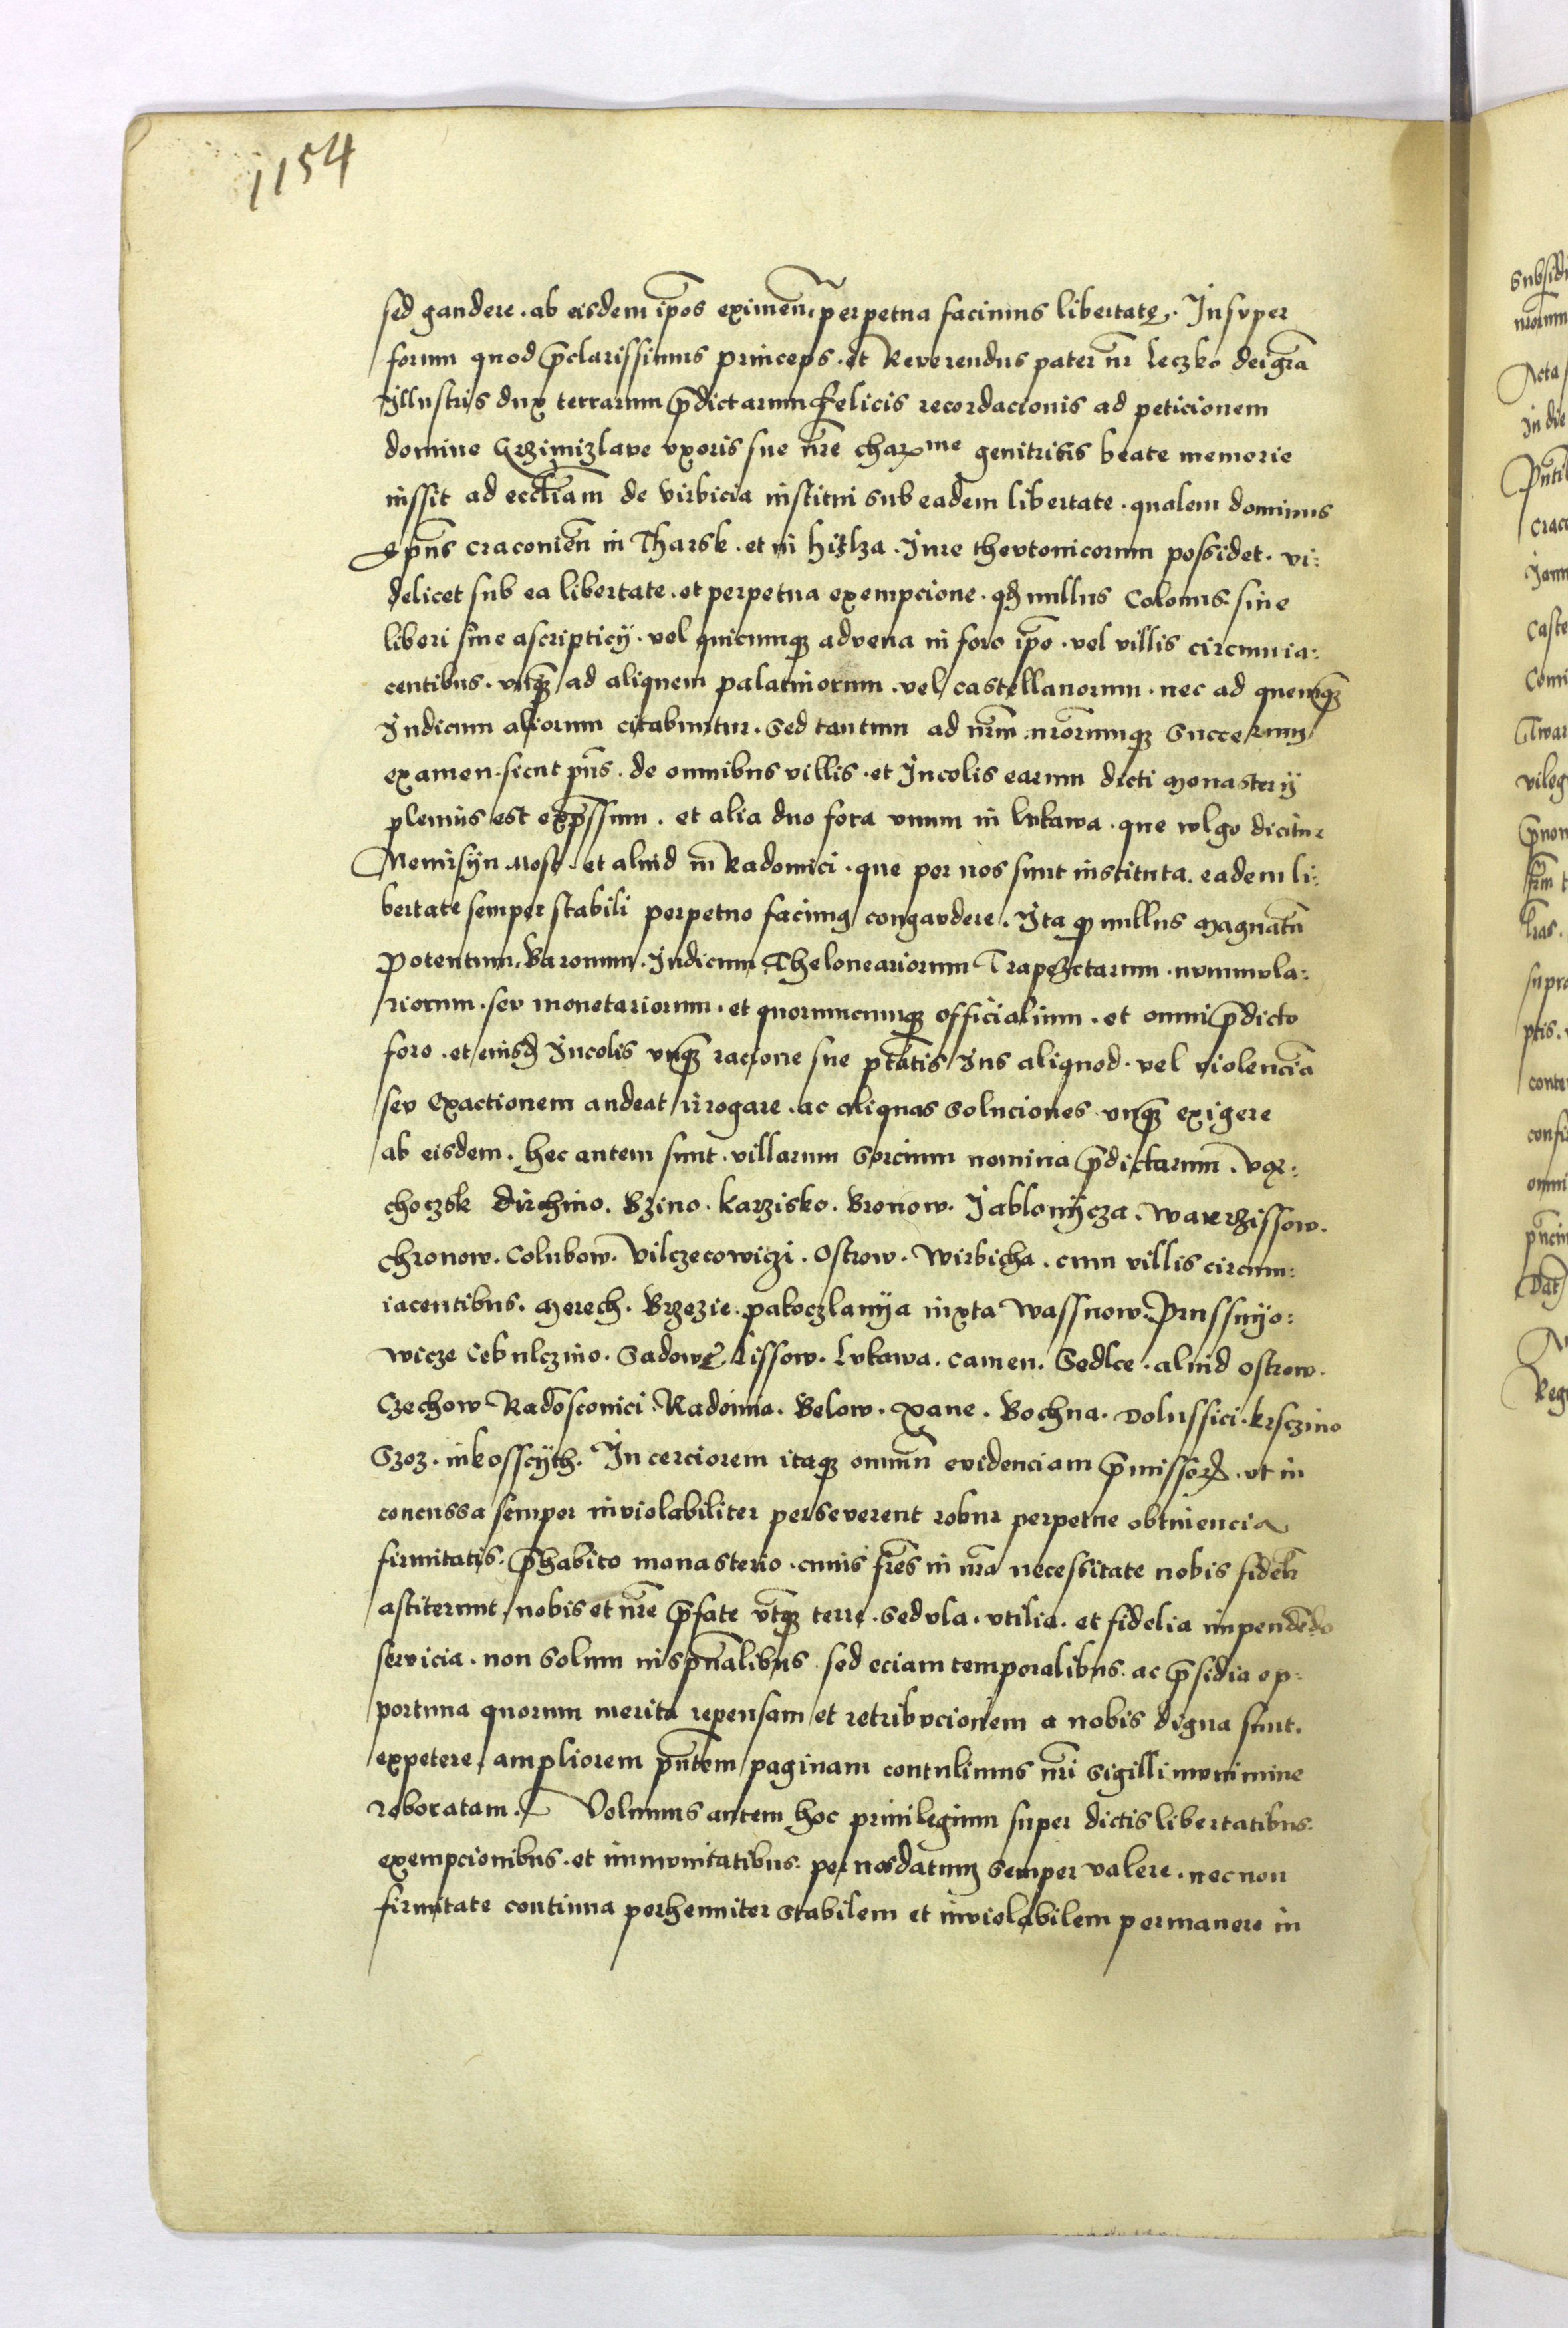 1154
sed gaudere. ab eisdem ip̄os eximen̄. perpetua facimus libertate. Insuper
forum quod p̄clarissimus princeps. et Reverendus pater nr̄ Leczko dei gr̄a
Illustris dux terrarum p̄dictarum felicis recordacionis ad peticionem
domine Grzimizlave vxoris sue nr̄e charme genitricis beate memorie
iussit ad eccl̄iam de Virbicia institui sub eadem libertate. qualem dominus
Ep̄us Craconien̄ in Tharsk. et in hizlza. Iure thevtonicorum possidet. vi:
delicet sub ea libertate. et perpetua exempcione. qd nullus Colonus. siue
liberi siue ascripticij. vel quicumq3 advena in foro ip̄o. vel villis circumia:
centibus. vnq̄3 ad aliquem palatinorum. vel castellanorum. nec ad quemq̄3
Iudicum aliorum citabuntur. Sed tantum ad nr̄m nr̄orumq3 Succerum
examen. sicut pn̄s. de omnibus villis. et Incolis earum dicti Monasterij
plenius est exp̄ssum. et alia duo fora vnum in Lvkawa. que wlgo dicitur
Nemisyn Most. et aliud in Radomici. que per nos sunt instituta. eadem li:
bertate semper stabili perpetuo facimus congavdere. Ita q3 nullus Magnatū
Potentum. Baronum. Iudicum Theloneariorum Trapezetarum. nvmmvla:
riorum. sev monetariorum. et quorumcumq3 officialium. et omni p̄dicto
foro. et eiusd Incolis vnq̄3 racione sue pt̄atis Ius aliquod. vel violenciā
sev Exactionem audeat irrogare. ac aliquas Soluciones vnq̄3 exigere
ab eisdem. hec autem sunt. villarum Sorcium nomina p̄dictarum. Vxr:
choczsk Dirchino. Bzino. Karzisko. Bronow. Jablonijcza. Wawrzissow.
Chronow. Colubow. Vilczecowiczi. Ostrow. Wirbicha. cum villis circum:
iacentibus. Merech. Brzezie. pakoczlanija iuxta Wassnow. Prussnijo:
wicze Cebulczino. Sadowe. Lissow. Lvkawa. Camen. Sedlce. aliud Ostrow.
Czechow Radosconici. Radomia. Below. Xane. Bochna. Dolussici. krsczino
Szoz. inkosscijth. In cerciorem itaq3 omnium evidenciam p̄missor. vt in
concussa semper inviolabiliter perseverent robur perpetue obtinencia
firmitatis. p̄habito monasterio. cuius fr̄es in nr̄a necessitate nobis fidelr
astiterunt. nobis et nr̄e p̄fate vtq3 terre. Sedvla. vtilia. et fidelia impendēdo
servicia. non solum in spūalibus. sed eciam temporalibus. ac p̄sidia op:
portuna quorum merita repensam et retribvcionem a nobis digna sunt.
expetere. ampliorem pn̄tem paginam contulimus nr̄i Sigilli mvnimine
roboratam. Volumus autem hoc privilegium super dictis libertatibus.
exempcionibus. et immvnitatibus. per nos datum semper valere. necnon
firmitate continua perhenniter stabilem et inviolabilem permanere in